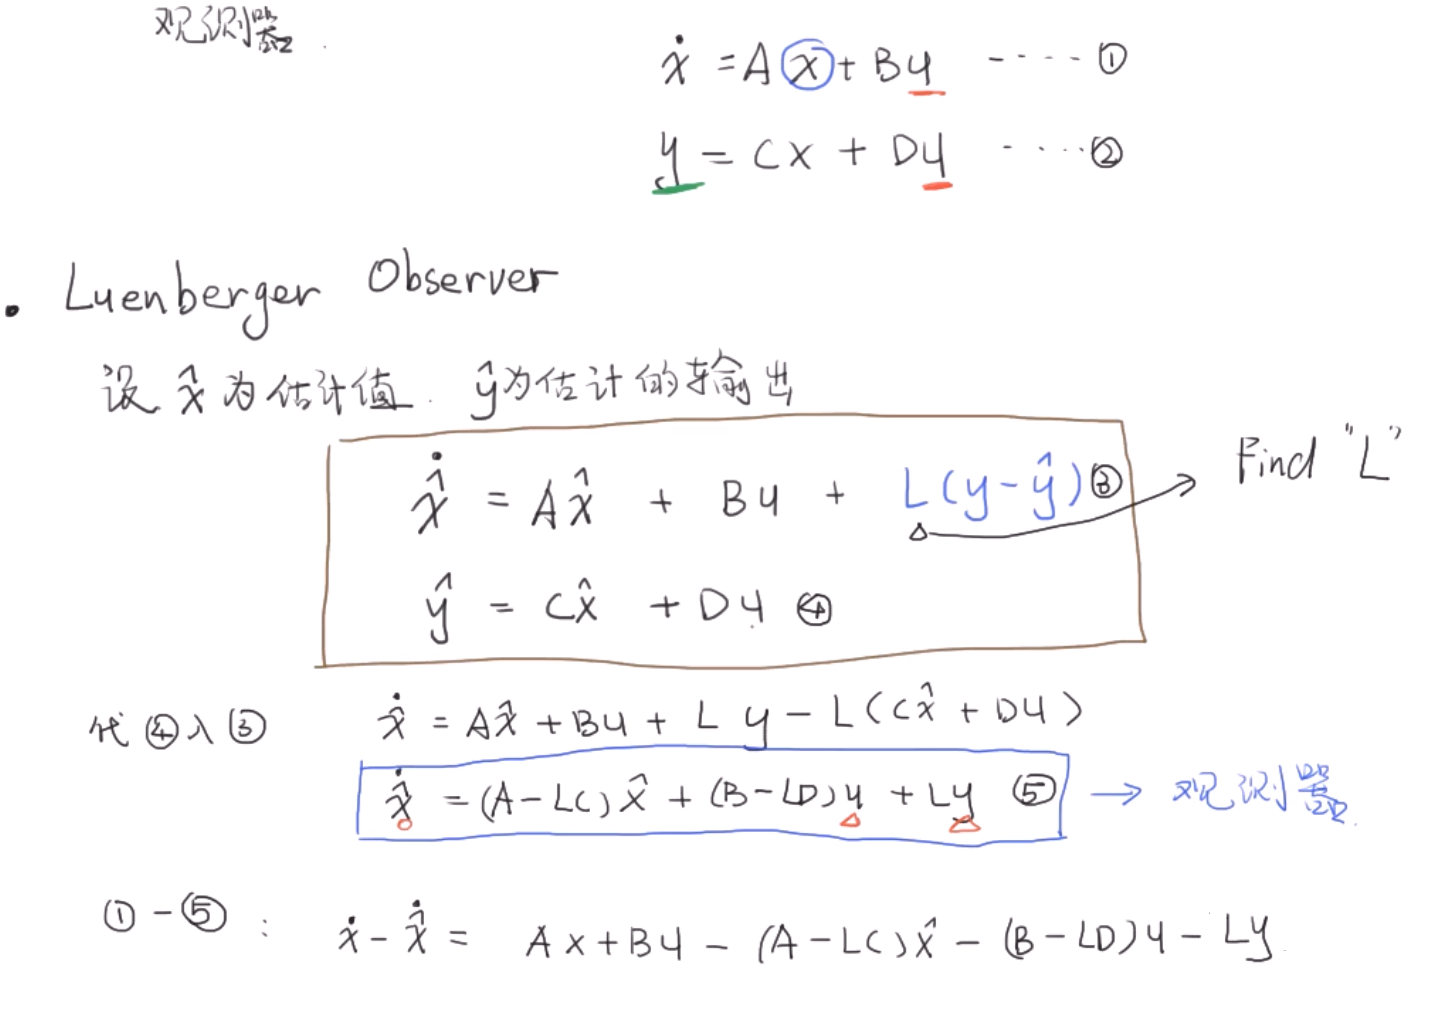 观测器.
ẋ = Ax + Bu ····· ①
y = Cx + Du ····· ②
· Luenberger Observer
设 x̂ 为估计值. ŷ为估计的输出
x̂̇ = Ax̂ + Bu + L(y-ŷ) ③ Find "L"
ŷ = Cx̂ + Du ④
代④入③ x̂̇ = Ax̂ + Bu + L y - L(Cx̂ + Du)
x̂̇ = (A-LC)x̂ + (B-LD)u + Ly ⑤ → 观测器.
①-⑤ : ẋ - x̂̇ = Ax + Bu - (A-LC)x̂ - (B-LD)u - Ly